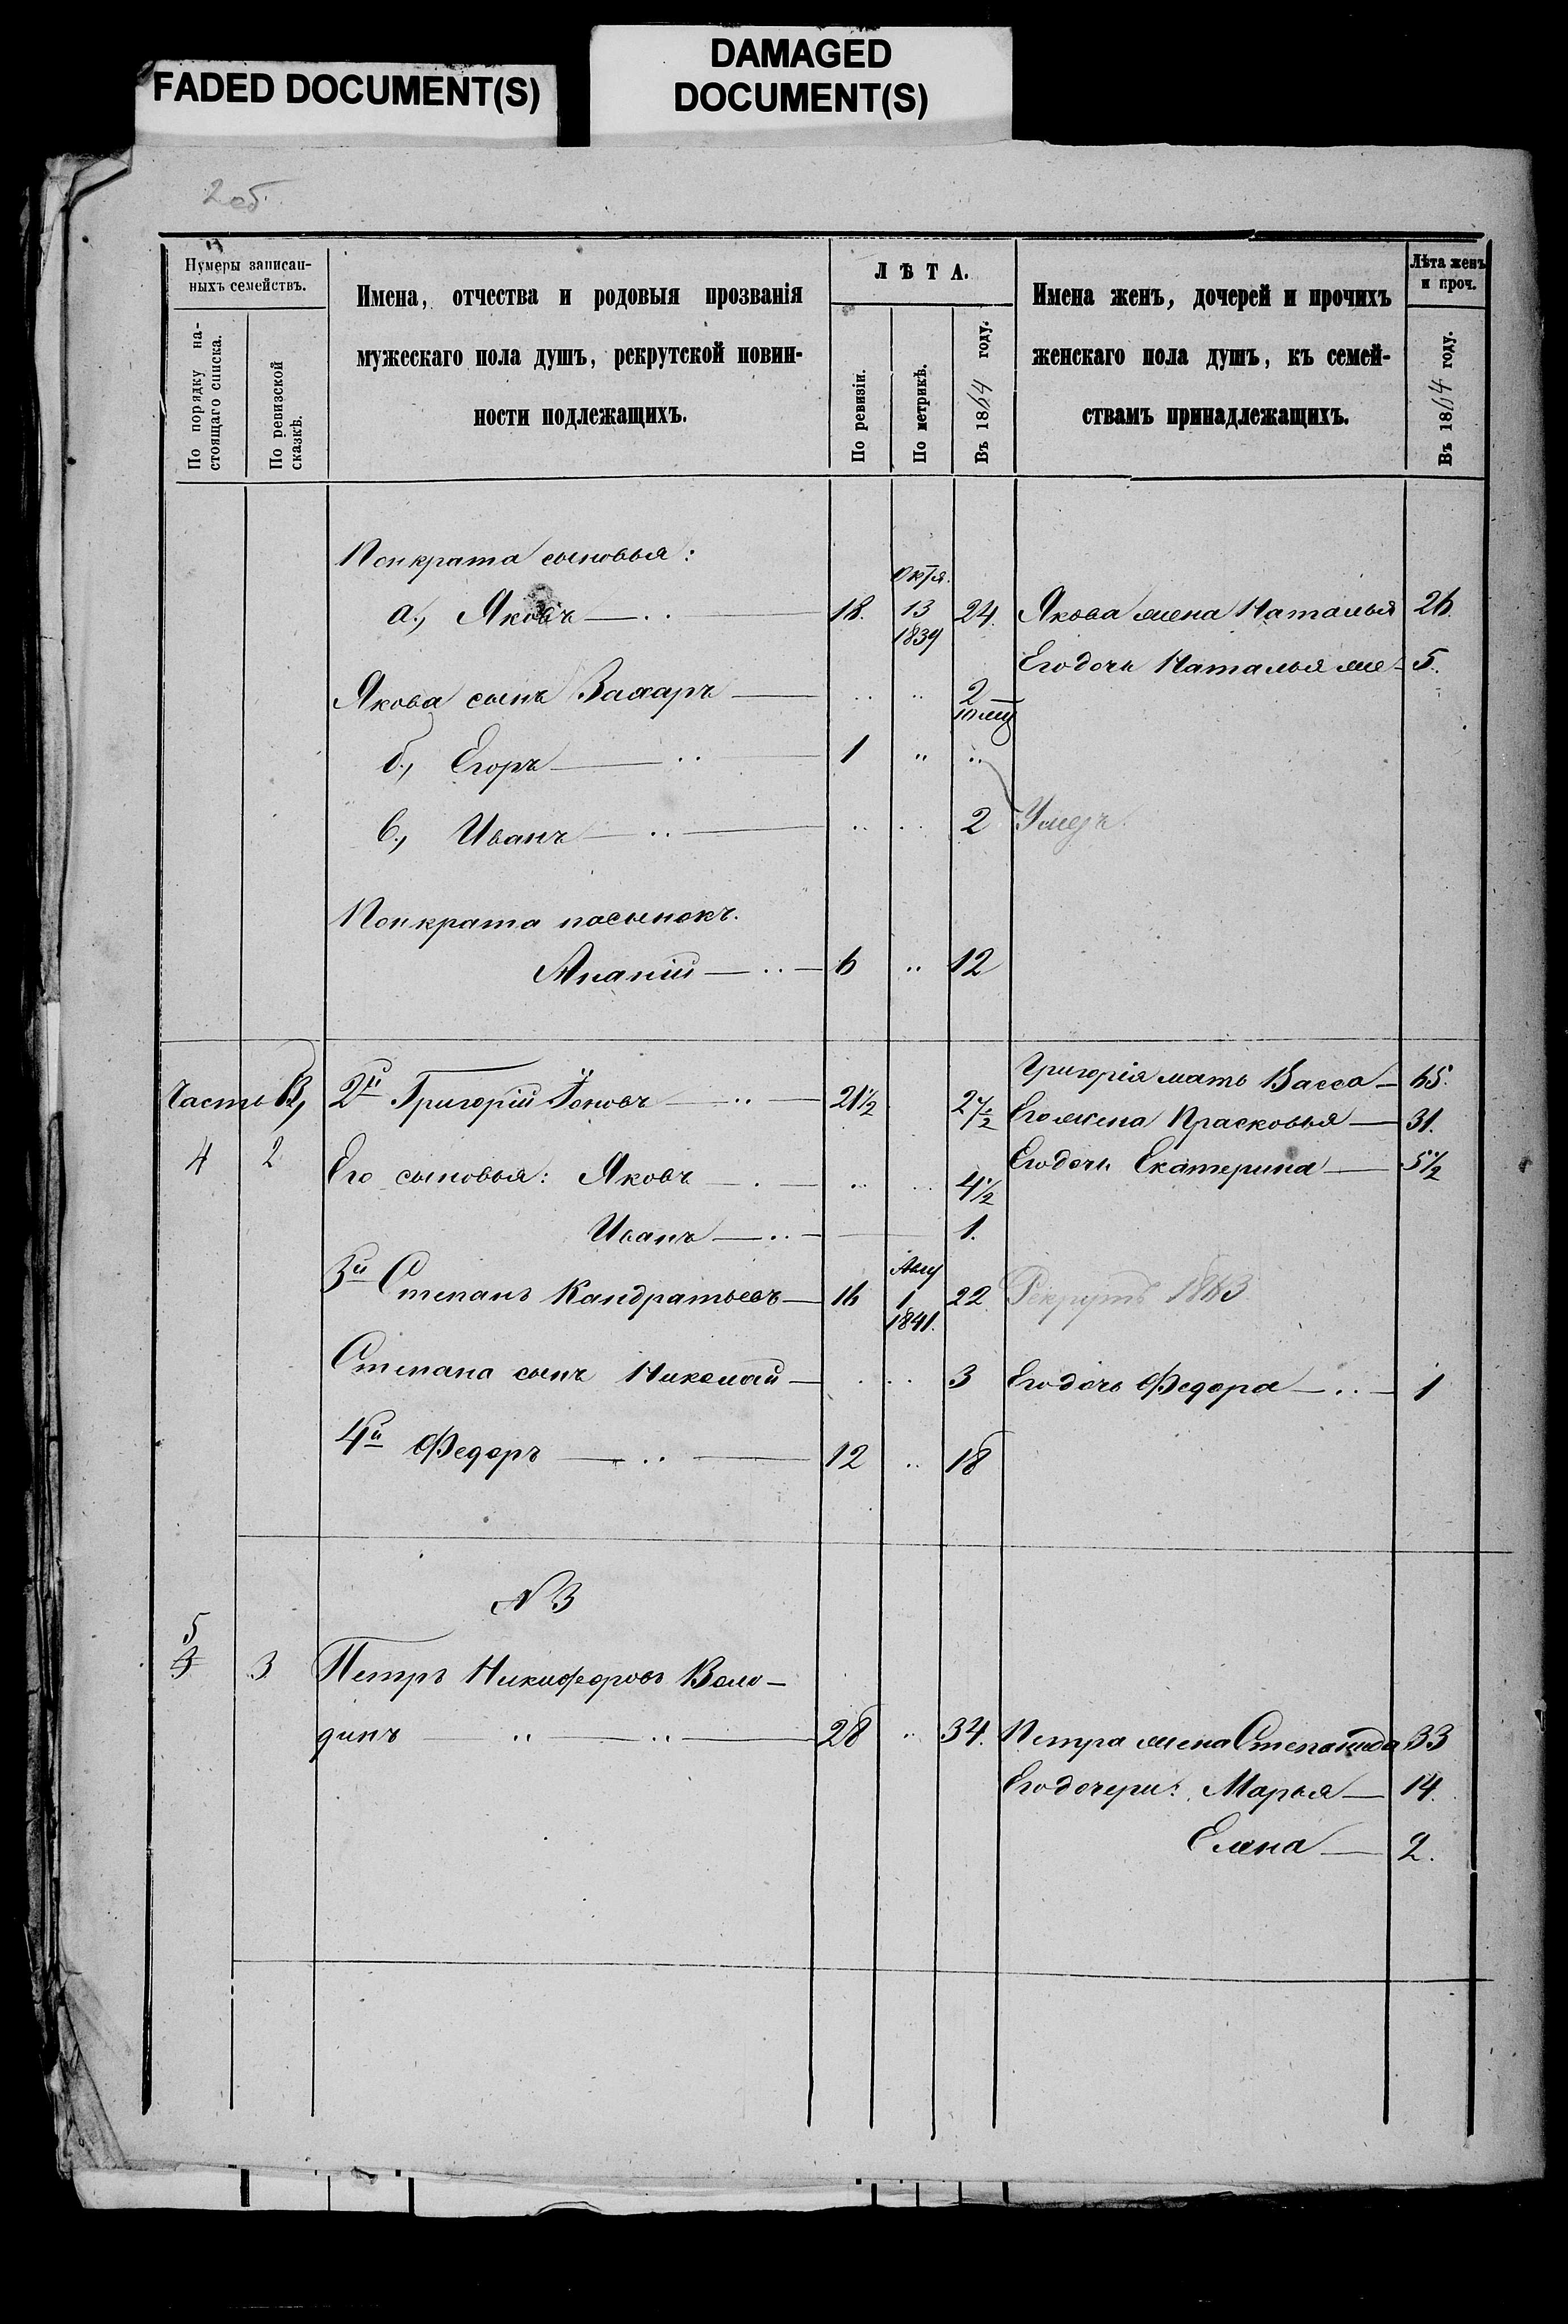 FADED DOCUMENT(S)
DAMAGED
DOCUMENT(S)
2 об.
Нумеры записан-
ныхъ семействъ.
По порядку на-
стоящаго списка.
По ревизской
сказкѣ.
Имена, отчества и родовыя прозванія
мужескаго пола душъ, рекрутской повин-
ности подлежащихъ.
ЛѢТА.
По ревизіи.
По метрикѣ.
Въ 1864 году.
Имена женъ, дочерей и прочихъ
женскаго пола душъ, къ семей-
ствамъ принадлежащихъ.
Лѣта женъ
и проч.
Въ 1864 году.
Понкрата сыновья:
а., Яковъ — 18. Октя. 13 1839 24. Якова жена Наталья 26.
Его дочь Наталья же 5.
Якова сынъ Захаръ — 2
10 мц
б., Егоръ — 1
в., Иванъ — 2 Умеръ.
Понкрата пасынокъ.
Ананій — 6 12
Григорія мать Васса — 65.
Часть В, 2й Григорій Фоновъ — 21½ 27½ Его жена Прасковья — 31.
4 2 Его дочь Екатерина — 5½
Его сыновья: Яковъ — 4½
Иванъ — 1.
3й Степанъ Кандратьевъ — 16 Авгу 1 1841. 22 Рекрутъ 1863
Степана сынъ Николай — 3 Его дочь Федора — 1
4й Федоръ — 12 18
N 3
5
3 3 Петръ Никифоровъ Воло-
динъ — 28 34. Петра жена Степанида 33
Его дочери: Марья — 14.
Елена — 2.